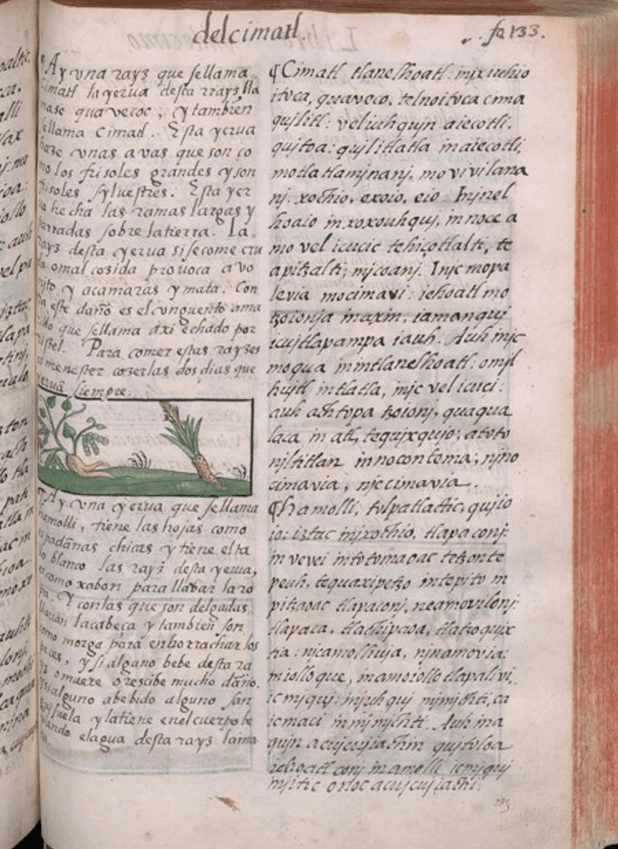 del cimatl.
fo 133.
Ay vna rayz que sellama
cimatl la yerua desta rrayz, lla
mase quavecoc, y tambien
sellama Cimatl. Esta yerua
haze vnas avas que son co
mo los frisoles grandes y son
frisoles syluestres. Esta yer
ua hecha las ramas largas y
parradas sobre latierra. La
rayz desta yerua si se come cru
da omal cozida prouoca a vo
mito, y acamaras y mata. Con
tra este daño es el vnguento ama
rillo que sellama axi echado por
cristel. Para comer estas rayzes
es menester cozerlas dos dias que
siempre.
Ay vna yerua que sellama
hamolli, tiene las hojas como
espadañas chicas y tiene elta
llo blanco las rayz desta yerua,
es como xabon para llabar la ro
pa. Y conlas que son delgadas,
lauan lacabeca y tambien son
como morga para enborrachar los
peces, y si alguno bebe desta ra
o muere o rescibe mucho daño.
Y si alguno a bebido alguno san
guisuela y latiene enel cuerpo be
biendo elagua desta rayz lama
¶Cimatl tlanelhoatl: injxiuhio
itoca, quaveco, te noitoca cima
quilitl: vel iuhqujn aiecotli,
quitoa: quilitlatla in aiecotli,
motlatlamjnanj, movivilana
nj. xochio, exoio, eio. Injnel
hoaio in xoxouhqui, in noce a
mo vel icucic tehiçotlalti, te
apitzalti; mjcoanj. Injc mopa
levia mocimavi: iehoatl mo
tzoionja in axin, iamanqui
icuitlapampa iauh. Auh injc
moqua in intlanelhoatl: omjl
huitl in tlatla, injc vel icuci:
auh achtopa tzoionj, quaqua
laca in atl, tequixquio; atoto
niltitlan innocontema; njno
cimavia, njccimavia.
¶hamolli, tulpatlactic, quiio
io: iztac injxochio, tlapaconj:
in vevei intotomaoac tetzonte
peuh, tequaxipetzo intepito in
pitzaoac tlapaconj, neamoviloni:
tlapaca, tlachipaoa, tlatzoquix
tia: nicamolhuja, ninamovia:
miolloque, mamoiollo tlapalivi.
ic mjquj. injuhquj mjmjchti, ca
ic maci in mjmjchti. Auh ina
quin acuecueiachin quitoloa
conj in amolli icmjqui
injitic onoc acuecueiachi.